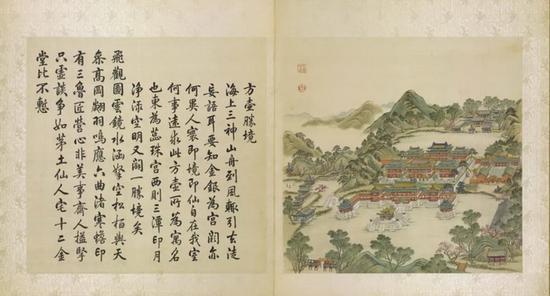 方壺勝境
海上三神山舟到風輒引去徒
妄語耳要知金銀為宮闕亦
何異人寰即境即仙自在我室
何事遠求此方壺所為寓名
也東為蕊珠宮西則三潭印月
淨淥空明又闢一勝境矣
飛觀圖雲鏡水涵拏空松柏與天
參高岡翽羽鳴應六曲渚寒蟾印
有三魯匠營心非美事齊人搤掔
只虛談爭如茅土仙人宅十二金
堂比不慙